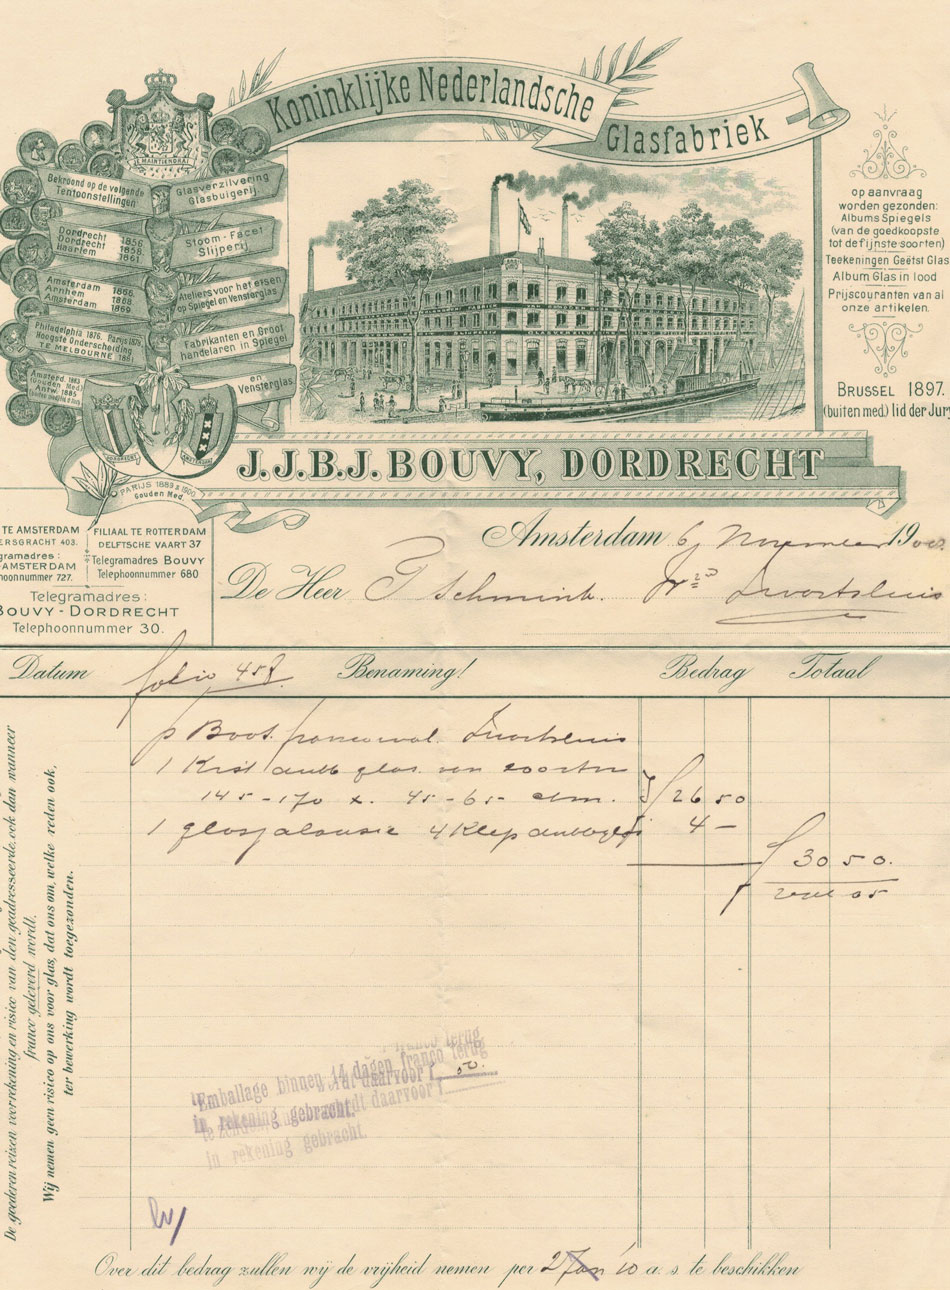 Koninklijke Nederlandsche
Glasfabriek
MAINTIENDRAI
Bekroond op de volgende
Tentoonstellingen
Glasverzilvering
Glasbuigerij
Dordrecht 1856
Dordrecht 1858
Haarlem 1861
Stoom-Facet
Slijperij
Amsterdam 1866
Arnhem 1868
Amsterdam 1869
Ateliers voor het etsen
op Spiegel en Vensterglas
Philadelphia 1876. Parijs 1878
Hoogste Onderscheiding
TE MELBOURNE 1881
Fabrikanten en Groot
handelaren in Spiegel
Amsterd. 1883
(Gouden Med.)
Antw. 1885
en
Vensterglas
DORDRECHT
AMSTERDAM
PARIJS 1889 & 1900
Gouden Med.
op aanvraag
worden gezonden:
Albums Spiegels
(van de goedkoopste
tot de fijnste soorten)
Teekeningen Geëtst Glas
Album Glas in lood
Prijscouranten van al
onze artikelen.
BRUSSEL 1897.
(buiten med.) lid der Jury
J.J.B.J. BOUVY, DORDRECHT
TE AMSTERDAM
ERSGRACHT 403.
gramadres:
AMSTERDAM
hoonnummer 727.
FILIAAL TE ROTTERDAM
DELFTSCHE VAART 37
Telegramadres BOUVY
Telephoonnummer 680
Telegramadres:
BOUVY-DORDRECHT
Telephoonnummer 30.
Amsterdam 6 November 19
De Heer P Schmink. Zwartsluis
Datum folio 458 Benaming! Bedrag Totaal
p Boot Zwartsluis
1 Krist dubb glas
145-170 x. 45-65 ctm. f 26 50
1 glasjalousie 4 Klep dubbglas 4 —
f 30 50.
05
De goederen reizen voor rekening en risico van den geadresseerde, ook dan wanneer
franco geleverd werdt.
Wij nemen geen risico op ons voor glas, dat ons om, welke reden ook,
ter bewerking wordt toegezonden.
Emballage binnen 14 dagen franco terug
daarvoor f
in rekening gebracht.
in rekening gebracht.
Over dit bedrag zullen wij de vrijheid nemen per 2 Jan 10 a. s. te beschikken